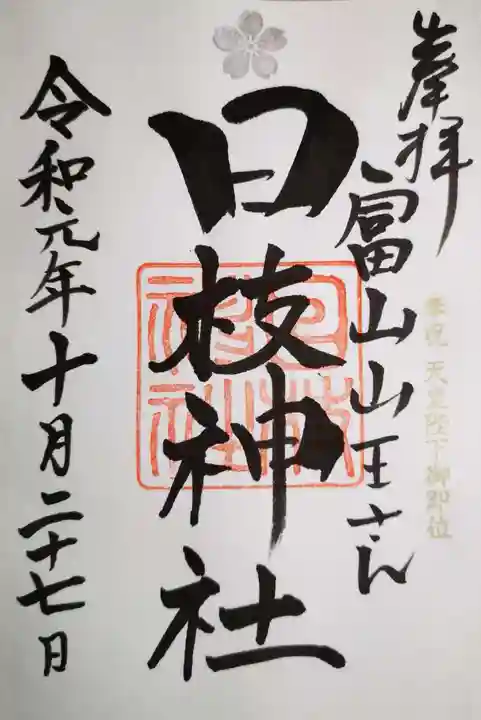 奉拝
富山山王さん
奉祝 天皇陛下御即位
日枝神社
日枝神社
令和元年十月二十七日